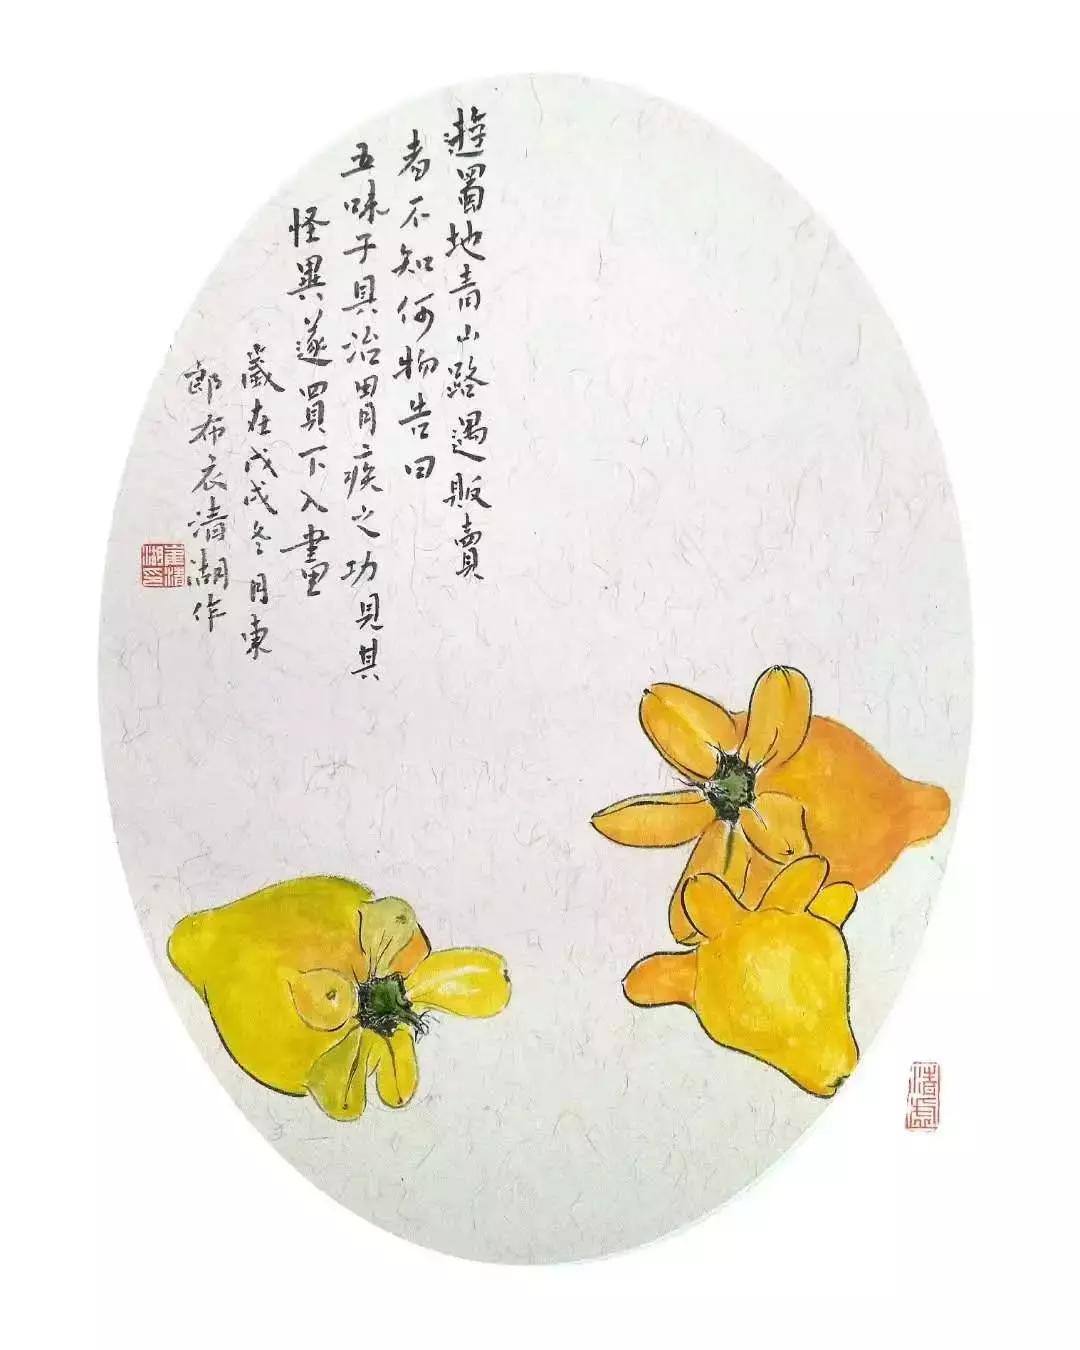 遊蜀地青山路遇販賣
者不知何物告曰
五味子具治胃疾之功見其
怪異遂買下入畫
歲在戊戌冬月東
郎布衣清湖作